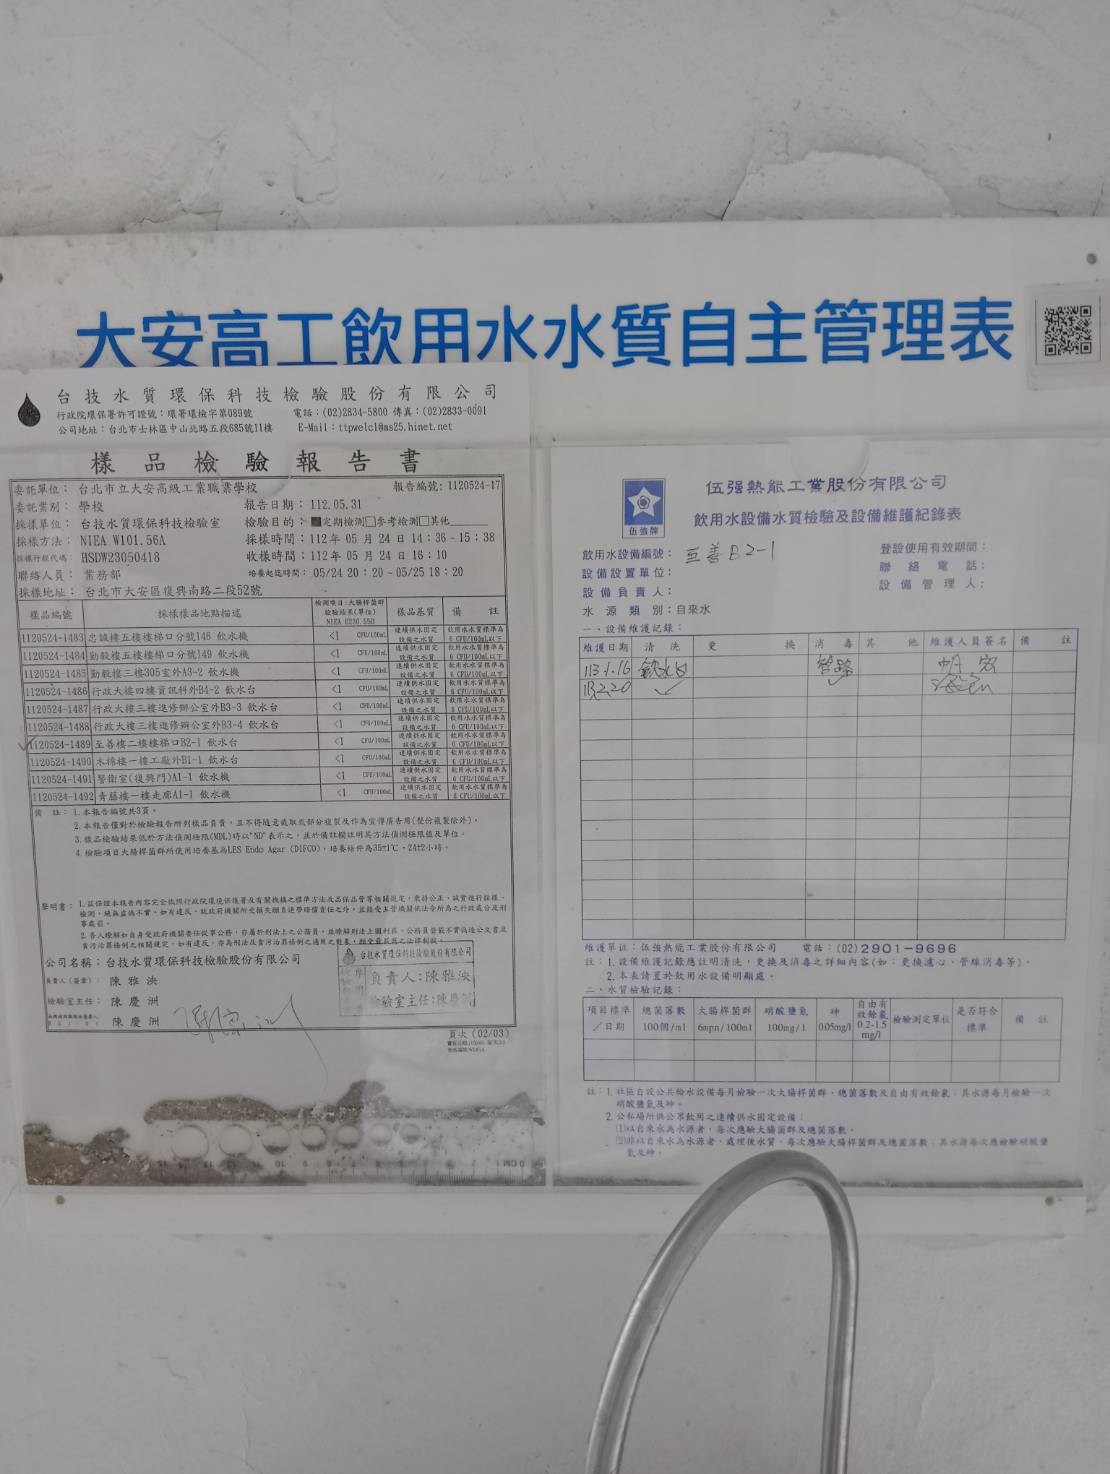 大安高工飲用水水質自主管理表
台技水質環保科技檢驗股份有限公司
行政院環保署許可證號：環署環檢字第089號 電話：(02)2834-5800 傳真：(02)2833-0091
公司地址：台北市士林區中山北路五段685號11樓 E-Mail：ttpwelcl@ms25.hinet.net
樣品檢驗報告書
委託單位：台北市立大安高級工業職業學校 報告編號：1120524-17
委託業別：學校 報告日期：112.05.31
採樣單位：台技水質環保科技檢驗室 檢驗目的：■定期檢測□參考檢測□其他
採樣方法：NIEA W101.56A 採樣時間：112年 05 月 24 日 14：36－15：38
採樣行程代碼：HSDW23050418 收樣時間：112年 05 月 24 日 16：10
聯絡人員：業務部 培養起迄時間：05/24 20：20～05/25 18：20
採樣地址：台北市大安區復興南路二段52號
樣品編號 採樣樣品地點描述 檢測項目:大腸桿菌群 檢驗結果(單位) NIEA E230.55B 樣品基質 備 註
1120524-1483 忠誠樓五樓樓梯口分號146 飲水機 <1 CFU/100mL 連續供水固定設備之水質 飲用水水質標準為6 CFU/100mL以下
1120524-1484 勤毅樓五樓樓梯口分號149 飲水機 <1 CFU/100mL 連續供水固定設備之水質 飲用水水質標準為6 CFU/100mL以下
1120524-1485 勤毅樓三樓305室外A3-2 飲水機 <1 CFU/100mL 連續供水固定設備之水質 飲用水水質標準為6 CFU/100mL以下
1120524-1486 行政大樓四樓資訊科外B4-2 飲水台 <1 CFU/100mL 連續供水固定設備之水質 飲用水水質標準為6 CFU/100mL以下
1120524-1487 行政大樓三樓進修辦公室外B3-3 飲水台 <1 CFU/100mL 連續供水固定設備之水質 飲用水水質標準為6 CFU/100mL以下
1120524-1488 行政大樓三樓進修辦公室外B3-4 飲水台 <1 CFU/100mL 連續供水固定設備之水質 飲用水水質標準為6 CFU/100mL以下
1120524-1489 至善樓二樓樓梯口B2-1 飲水台 <1 CFU/100mL 連續供水固定設備之水質 飲用水水質標準為6 CFU/100mL以下
1120524-1490 木棉樓一樓工廠外B1-1 飲水台 <1 CFU/100mL 連續供水固定設備之水質 飲用水水質標準為6 CFU/100mL以下
1120524-1491 警衛室(復興門)A1-1 飲水機 <1 CFU/100mL 連續供水固定設備之水質 飲用水水質標準為6 CFU/100mL以下
1120524-1492 青藤樓一樓走廊A1-1 飲水機 <1 CFU/100mL 連續供水固定設備之水質 飲用水水質標準為6 CFU/100mL以下
備 註：1.本報告編號共3頁。
2.本報告僅對於檢驗報告所列樣品負責，且不得隨意截取或部分複製及作為宣傳廣告用(整份複製除外)。
3.樣品檢驗結果低於方法偵測極限(MDL)時以"ND"表示之，並於備註欄註明其方法偵測極限值及單位。
4.檢驗項目大腸桿菌群所使用培養基為LES Endo Agar (DIFCO)，培養條件為35±1℃、24±2小時。
聲明書：1.茲保證本報告內容完全依照行政院環境保護署及有關機構之標準方法及品保品管等相關規定，秉持公正、誠實進行採樣、
檢測，絕無虛偽不實，如有違反，就政府機關所受損失願負連帶賠償責任之外，並接受主管機關依法令所為之行政處分及刑
事處罰。
2.吾人瞭解如自身受政府機關委任從事公務，亦屬於刑法上之公務員，並瞭解刑法上圖利罪、公務員登載不實偽造公文書及
貪污治罪條例之相關規定，如有違反，亦為刑法及貪污治罪條例之適用之對象
公司名稱：台技水質環保科技檢驗股份有限公司
負責人(簽章)：陳雅泱
檢驗室主任：陳慶洲
陳慶洲
台技水質環保科技檢驗股份有限公司
負責人：陳雅泱
檢驗室主任：陳慶洲
頁次 (02/03)
伍強牌
伍强熱能工業股份有限公司
飲用水設備水質檢驗及設備維護紀錄表
飲用水設備編號：至善B2-1 登設使用有效期間：
設備設置單位： 聯絡電話：
設備負責人： 設備管理人：
水源類別：自來水
一、設備維護記錄：
維護日期 清洗 更換 消毒 其他 維護人員簽名 備註
113.1.16
113.2.20 ✓ ✓
維護單位：伍強熱能工業股份有限公司 電話：(02)2901-9696
註：1.設備維護記錄應註明清洗，更換及消毒之詳細內容(如：更換濾心、管線消毒等)。
2.本表請置於飲用水設備明顯處。
二、水質檢驗記錄：
項目標準／日期 總菌落數 100個/ml 大腸桿菌群 6mpn/100ml 硝酸鹽氮 100mg/l 砷 0.05mg/l 自由有效餘氯 0.2-1.5 mg/l 檢驗測定單位 是否符合標準 備註
註：1.社區自設公共給水設備每月檢驗一次大腸桿菌群、總菌落數及自由有效餘氯；其水源每月檢驗一次
硝酸鹽氮及砷。
2.公私場所供公眾飲用之連續供水固定設備：
(1)以自來水為水源者，每次應驗大腸菌群及總菌落數。
(2)非以自來水為水源者，處理後水質，每次應驗大腸桿菌群及總菌落數；其水源每次應檢驗硝酸鹽
氮及砷。